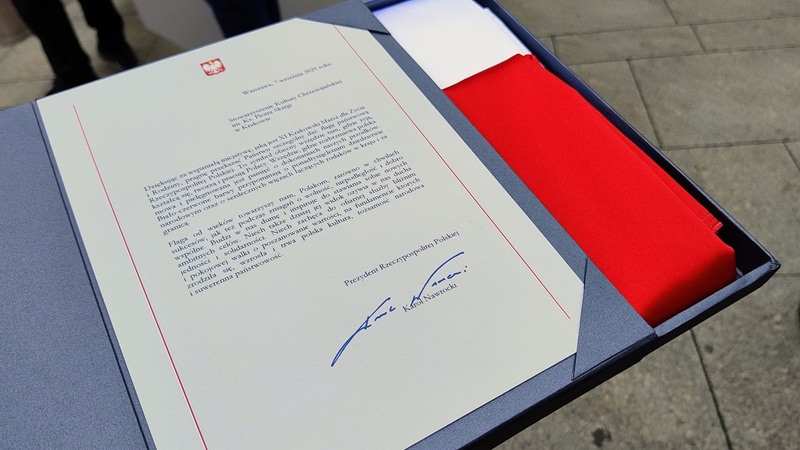 Warszawa, 7 września 2025 roku
Stowarzyszenie Kultury Chrześcijańskiej
im. Ks. Piotra Skargi
w Krakowie
Dziękując za wspaniałą inicjatywę, jaką jest XI Krakowski Marsz dla Życia
i Rodziny, pragnę przekazać Państwu szczególny dar: flagę państwową
Rzeczypospolitej Polskiej. To symbol obecny wszędzie tam, gdzie żyją,
kształcą się, tworzą i pracują Polacy. Wszędzie, gdzie rozbrzmiewa polska
mowa i pielęgnowana jest pamięć o dokonaniach naszych przodków.
Biało-czerwone barwy przypominają o ponadtysiącletnim dziedzictwie
narodowym oraz o serdecznych więzach łączących rodaków w kraju i za
granicą.
Flaga od wieków towarzyszy nam, Polakom, zarówno w chwilach
sukcesów, jak też podczas zmagań o wolność, niepodległość i dobro
wspólne. Budzi w nas dumę i inspiruje do stawiania sobie nowych
ambitnych celów. Niech także dzisiaj jej widok ożywia w nas ducha
jedności i solidarności. Niech zachęca do ofiarnej służby bliźnim
i pokojowej walki o poszanowanie wartości, na fundamencie których
zrodziła się, wzrosła i trwa polska kultura, tożsamość narodowa
i suwerenna państwowość.
Prezydent Rzeczypospolitej Polskiej
Karol Nawrocki